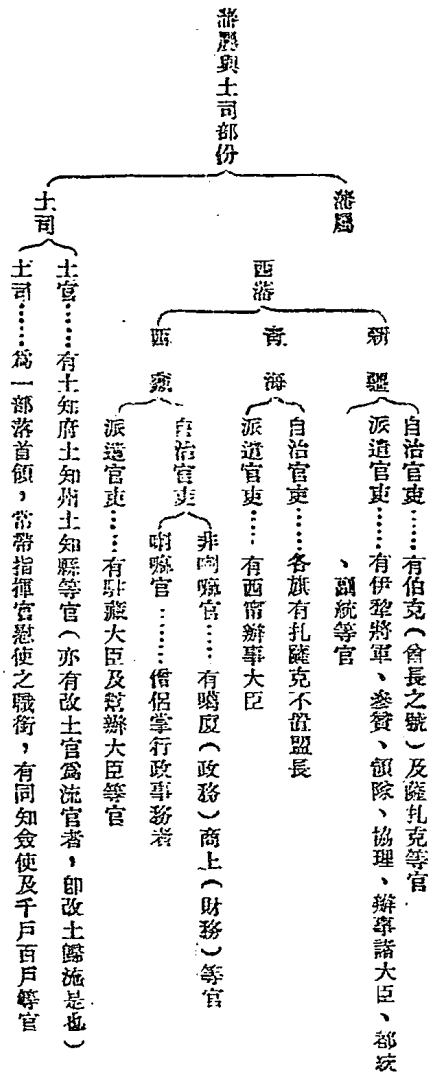 藩屬與土司部份
藩屬
西藩
新疆
自治官吏……有伯克(酋長之號)及薩扎克等官
派遣官吏……有伊犂將軍、參贊、領隊、協理、辦事諸大臣、都統
、副統等官
青海
自治官吏……各旗有扎薩克不置盟長
派遣官吏……有西甯辦事大臣
西藏
自治官吏
非喇嘛官……有噶廈(政務)商上(財務)等官
喇嘛官………僧侶掌行政事務者
派遣官吏……有駐藏大臣及幫辦大臣等官
土司
土官……有土知府土知州土知縣等官(亦有改土官爲流官者,卽改土歸流是也)
土司……爲一部落首領,常帶指揮宣慰使之職銜,有同知僉使及千戶百戶等官